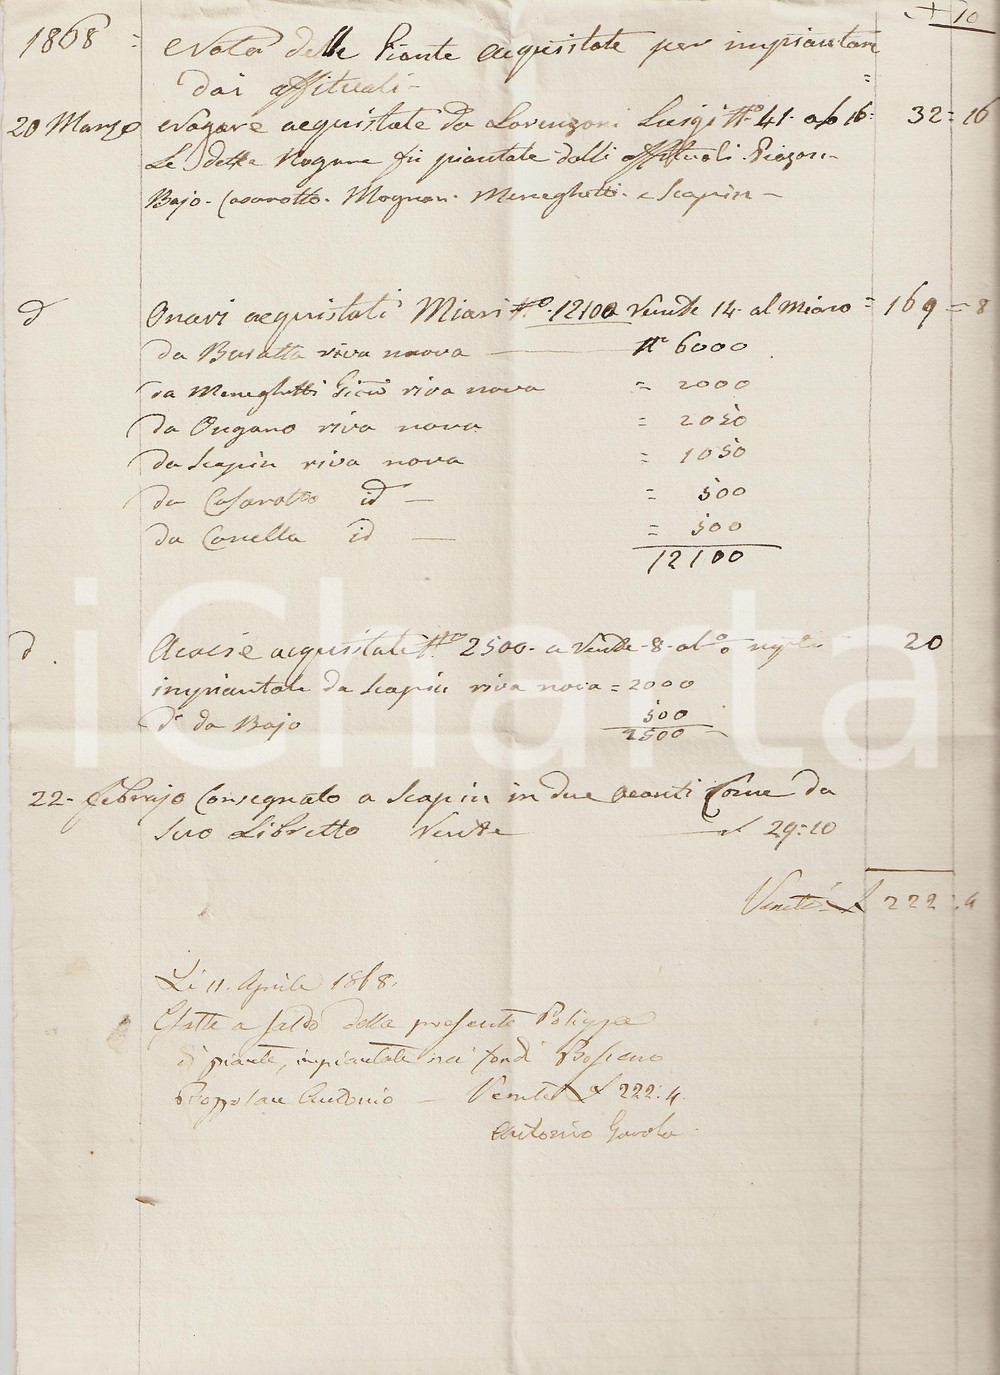 10
1868 = Nota delle Piante acquistate per impiantare
dai affituali -
20 Marzo Nogare acquistate da Lorenzoni Luigi N.o 41 a £ 16 = 32 = 16
Le dette Nogare fu piantate dalli affituali
Bajo - Casarotto - Mognon - Meneghetti - e Scapin -
d Onari acquistati Miari N.o 12100 Venete 14 al Miaro = 169 = 8
da Buratta riva nuova N.o 6000
da Meneghetti riva nova = 2000
da Ongano riva nova = 2050
da Scapin riva nova = 1050
da Casarotto id = 500
da Canella id = 500
12100
d. Acacie acquistati N.o 2500 - a Venete 8 al 20
impiantate da Scapin riva nova = 2000
d.o da Bajo 500
2500
22 - Febrajo Consegnato a Scapin in due aconti Come da
suo Libretto Venete £ 29:10
Venete £ 222.4
iCharta
Li 11. Aprile 1868.
a saldo della presente Polizza
di piante, impiantate nei fondi
Antonio - Venete £ 222:4.
Antonio